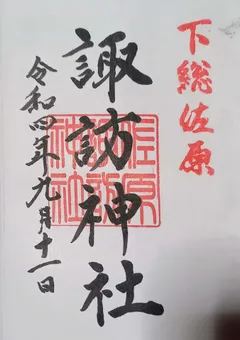 下総佐原
諏訪神社
佐原
諏訪
神社
令和四年九月十一日